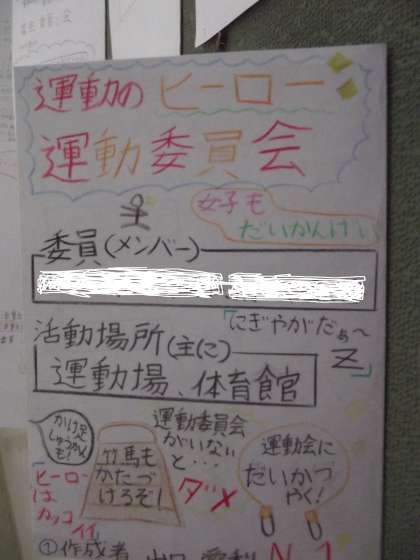 運動のヒーロー
運動委員会
女子も
だいかんげい
委員(メンバー)
活動場所(主に)
「にぎやかだぁ～
Z」
運動場、体育館
かけ足
しゅうかん
も!
竹馬も
かたづ
けるぞ!
運動委員会
がいない
と・・・
ダメ
運動会に
だいかつ
やく!
ヒーロー
は
カッコ
イイ
①作成者
No.1